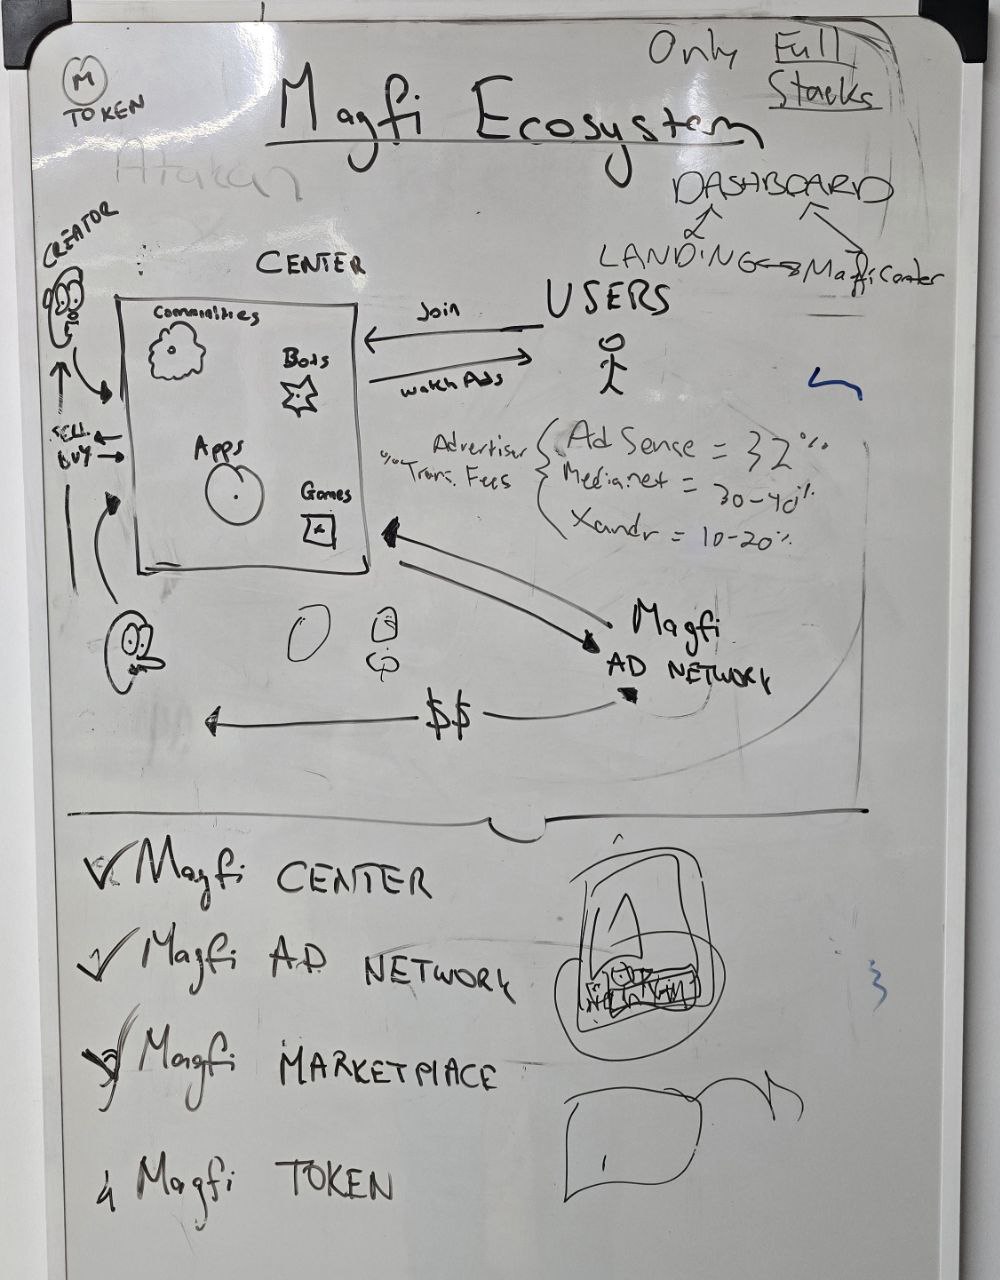 M
TOKEN
Only Full
Stacks
Magfi Ecosystem
Atakan
DASHBOARD
LANDING
Magfi Center
CREATOR
CENTER
Commnities
Bots
Apps
Games
SELL
BUY
Join
watch Ads
USERS
Advertiser
% Trans. Fees
Ad Sense = 32%
Media.net = 30-40%
Xandr = 10-20%
Magfi
AD NETWORK
$$
Magfi CENTER
Magfi AD NETWORK
Magfi MARKETPLACE
4 Magfi TOKEN